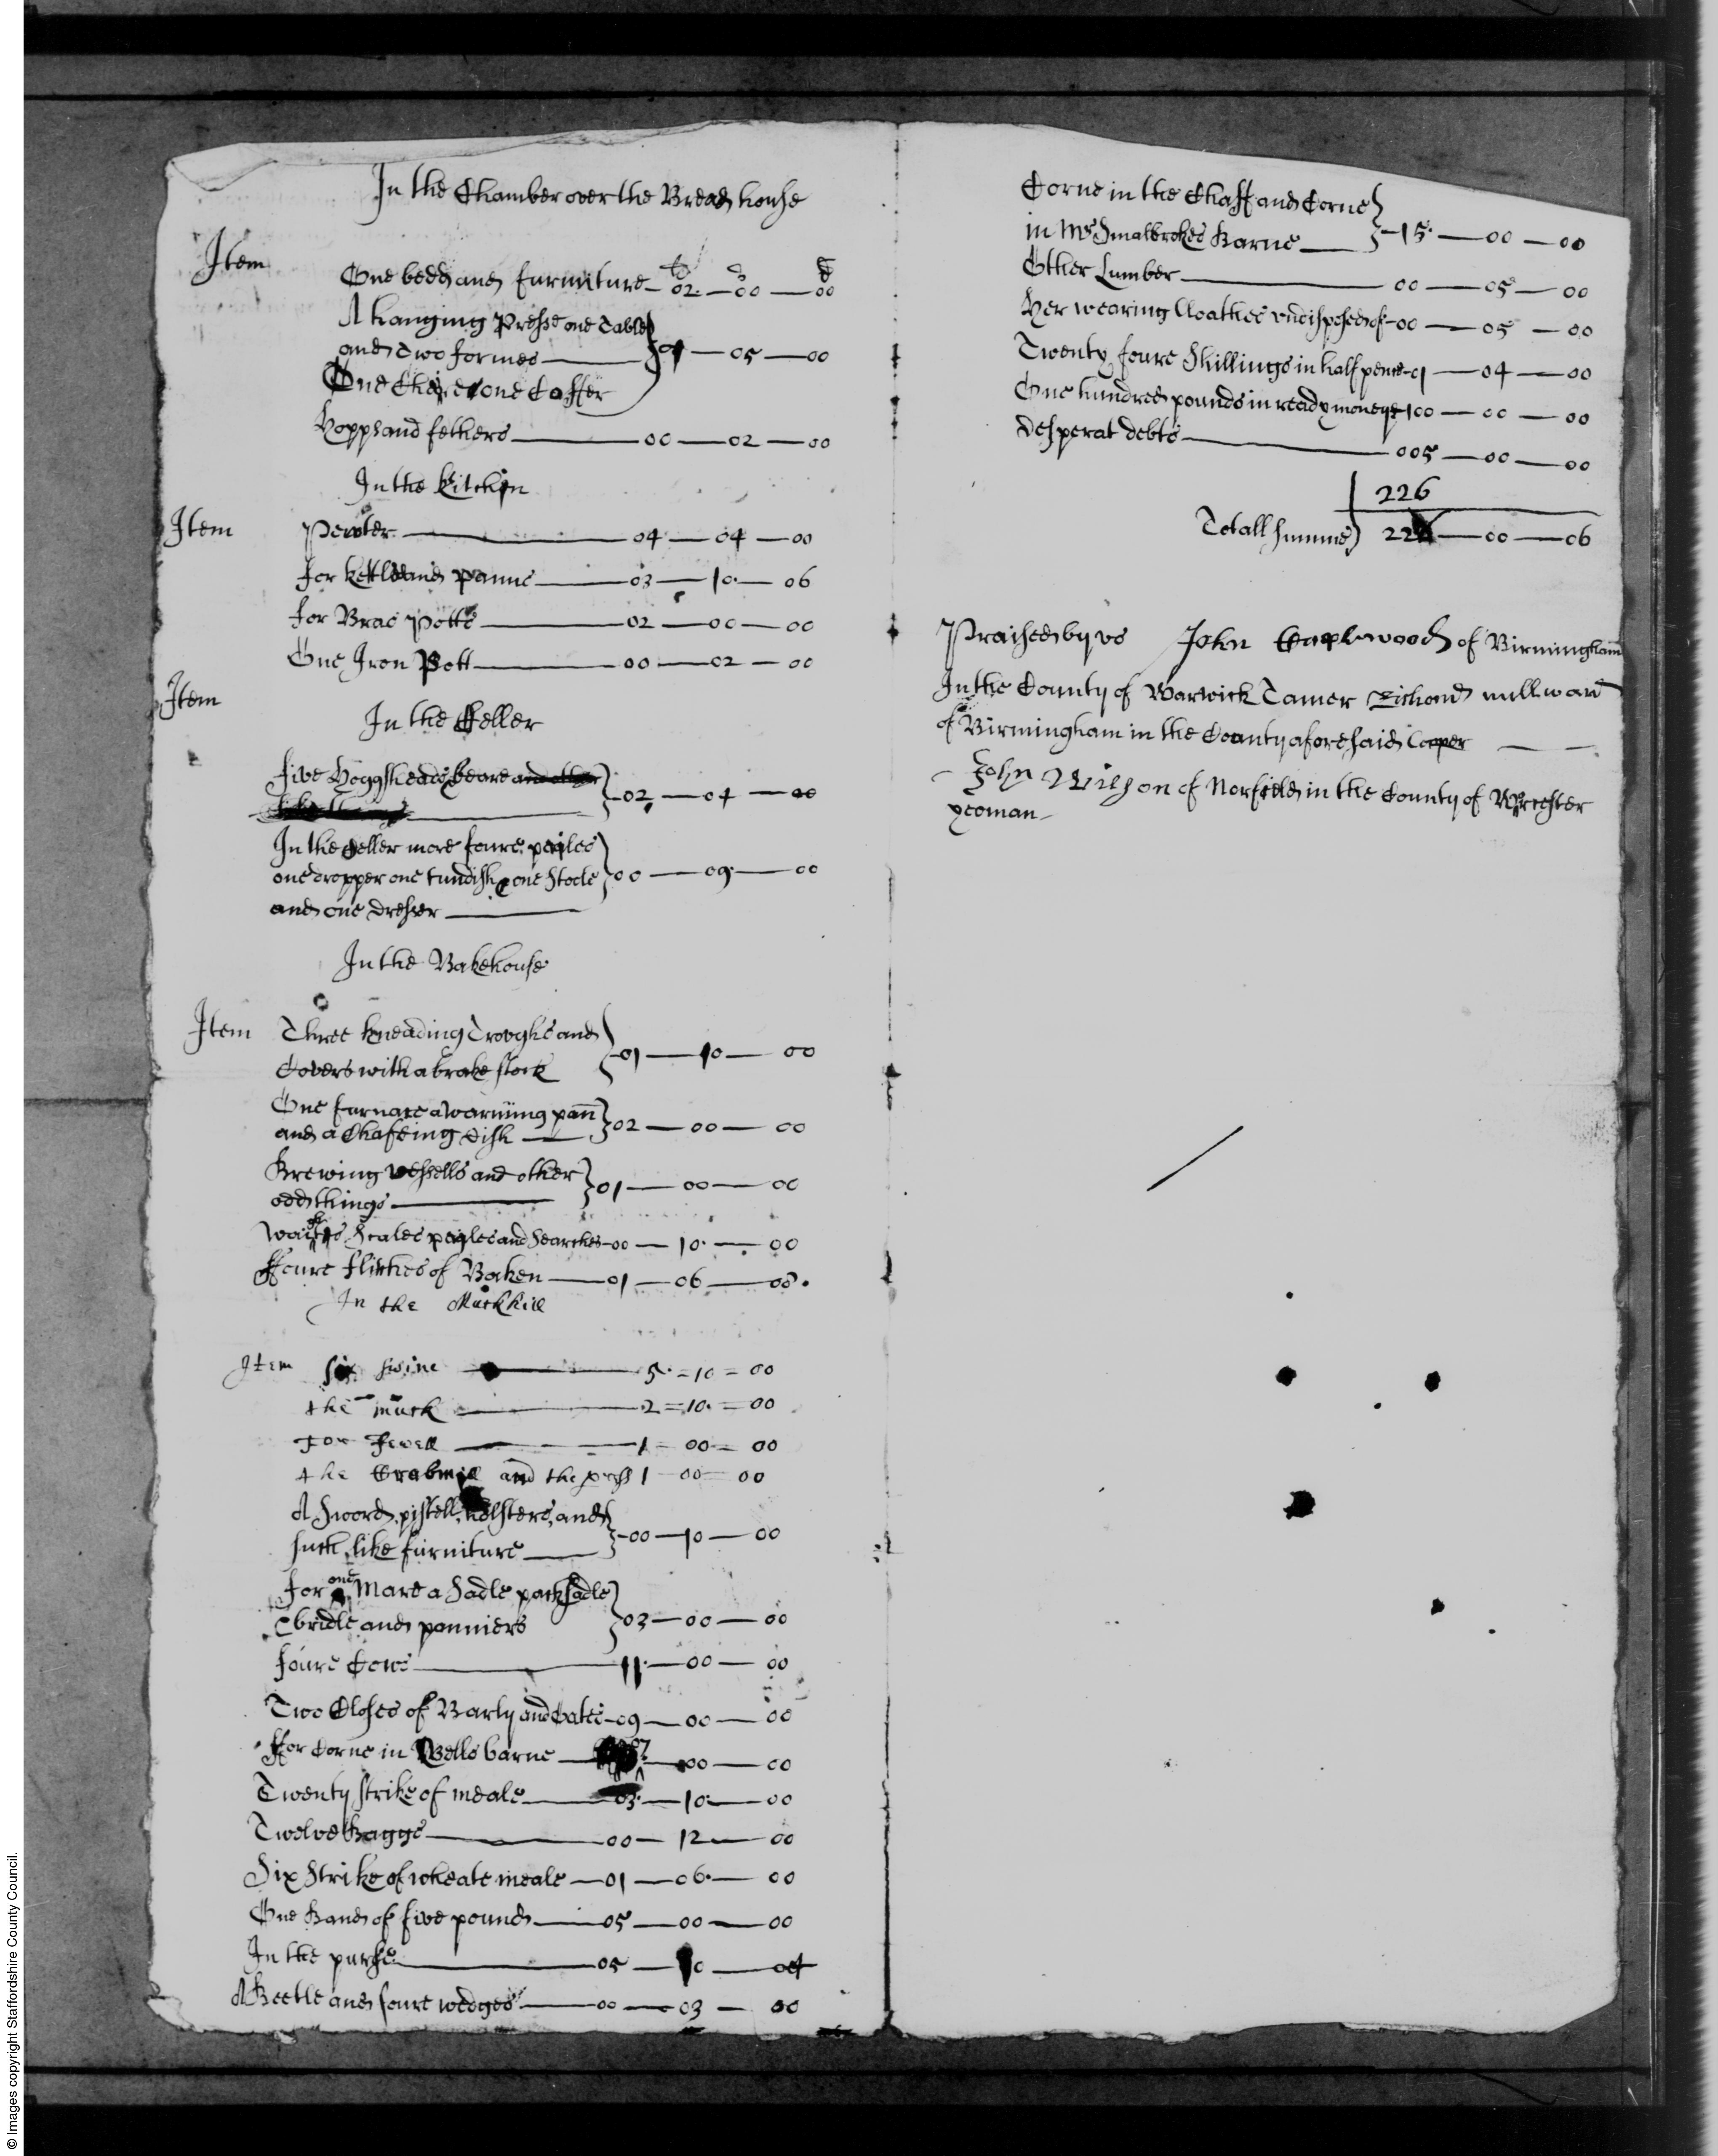 In the Chamber over the Bread house
Item
li s d
One bedd and furniture - 02 - 00 - 00
A hanging Presse one Table
and Two formes - 01 - 05 - 00
One Cheire one Coffer
Hopps and fethers - 00 - 02 - 00
In the Kitchin
Item Pewter - 04 - 04 - 00
for kettles and panns - 03 - 10 - 06
for Bras Potts - 02 - 00 - 00
One Iron Pott - 00 - 02 - 00
Item
In the Seller
five Hoggsheads beare and other - 02 - 04 - 00
In the seller more foure payles
one dropper one tundish one Stoole - 00 - 09 - 00
and one dresser
In the Bakehouse
Item Three kneading Troughs and
Covers with a brake stock - 01 - 10 - 00
One furnace a Warming pann
and a Chafeing dish - 02 - 00 - 00
Brewing vessells and other
odd things - 01 - 00 - 00
Scales payles and Searches - 00 - 10 - 00
ffoure flitches of Backen - 01 - 06 - 08
In the Muckhill
Item six swine - 5 = 10 = 00
the muck - 2 = 10 = 00
For Fewell - 1 - 00 = 00
the Crabmill and the press 1 - 00 - 00
A Sword, pistell, holsters, and
such like furniture - 00 - 10 - 00
for one Mare a Sadle packsadle
bridle and panniers - 03 - 00 - 00
foure Cows - 11 - 00 - 00
Two Closes of Barly and Oates - 09 - 00 - 00
ffor Corne in Wells barne - 7 - 00 - 00
Twenty strike of meale - 03 - 10 - 00
Twelve Baggs - 00 - 12 - 00
Six Strike of wheate meale - 01 - 06 - 00
One Band of five pound - 05 - 00 - 00
In the purse - 05 - 10 - 04
A Beetle and foure wedges - 00 - 03 - 00
Corne in the Chaff and Corne
in Mrs Smalbrokes Barne - 15 - 00 - 00
Other Lumber - 00 - 05 - 00
Her wearing Cloathes undisposed of - 00 - 05 - 00
Twenty foure Shillings in half pence - 01 - 04 - 00
One hundred pounds in ready moneye - 100 - 00 - 00
desperat debts - 005 - 00 - 00
226
Totall summe) 226 - 00 - 06
Praised by us John of Birmingham
In the County of Warwick Tanner Richard millward
of Birmingham in the County aforesaid Cooper
John Wilson of Norfield in the County of Worcester
yeoman
© Images copyright Staffordshire County Council.